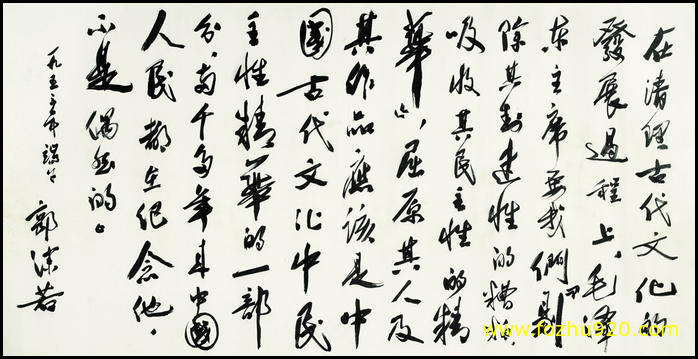 在清理古代文化的
發展過程上，毛澤
東主席要我們剔
除其封建性的糟粕，
吸收其民主性的精
華，屈原其人及
其作品應該是中
國古代文化中民
主性精華的一部
分。两千多年来中國
人民都在纪念他，
不是偶然的。
一九五三年端午
郭沫若
www.fozhu920.com